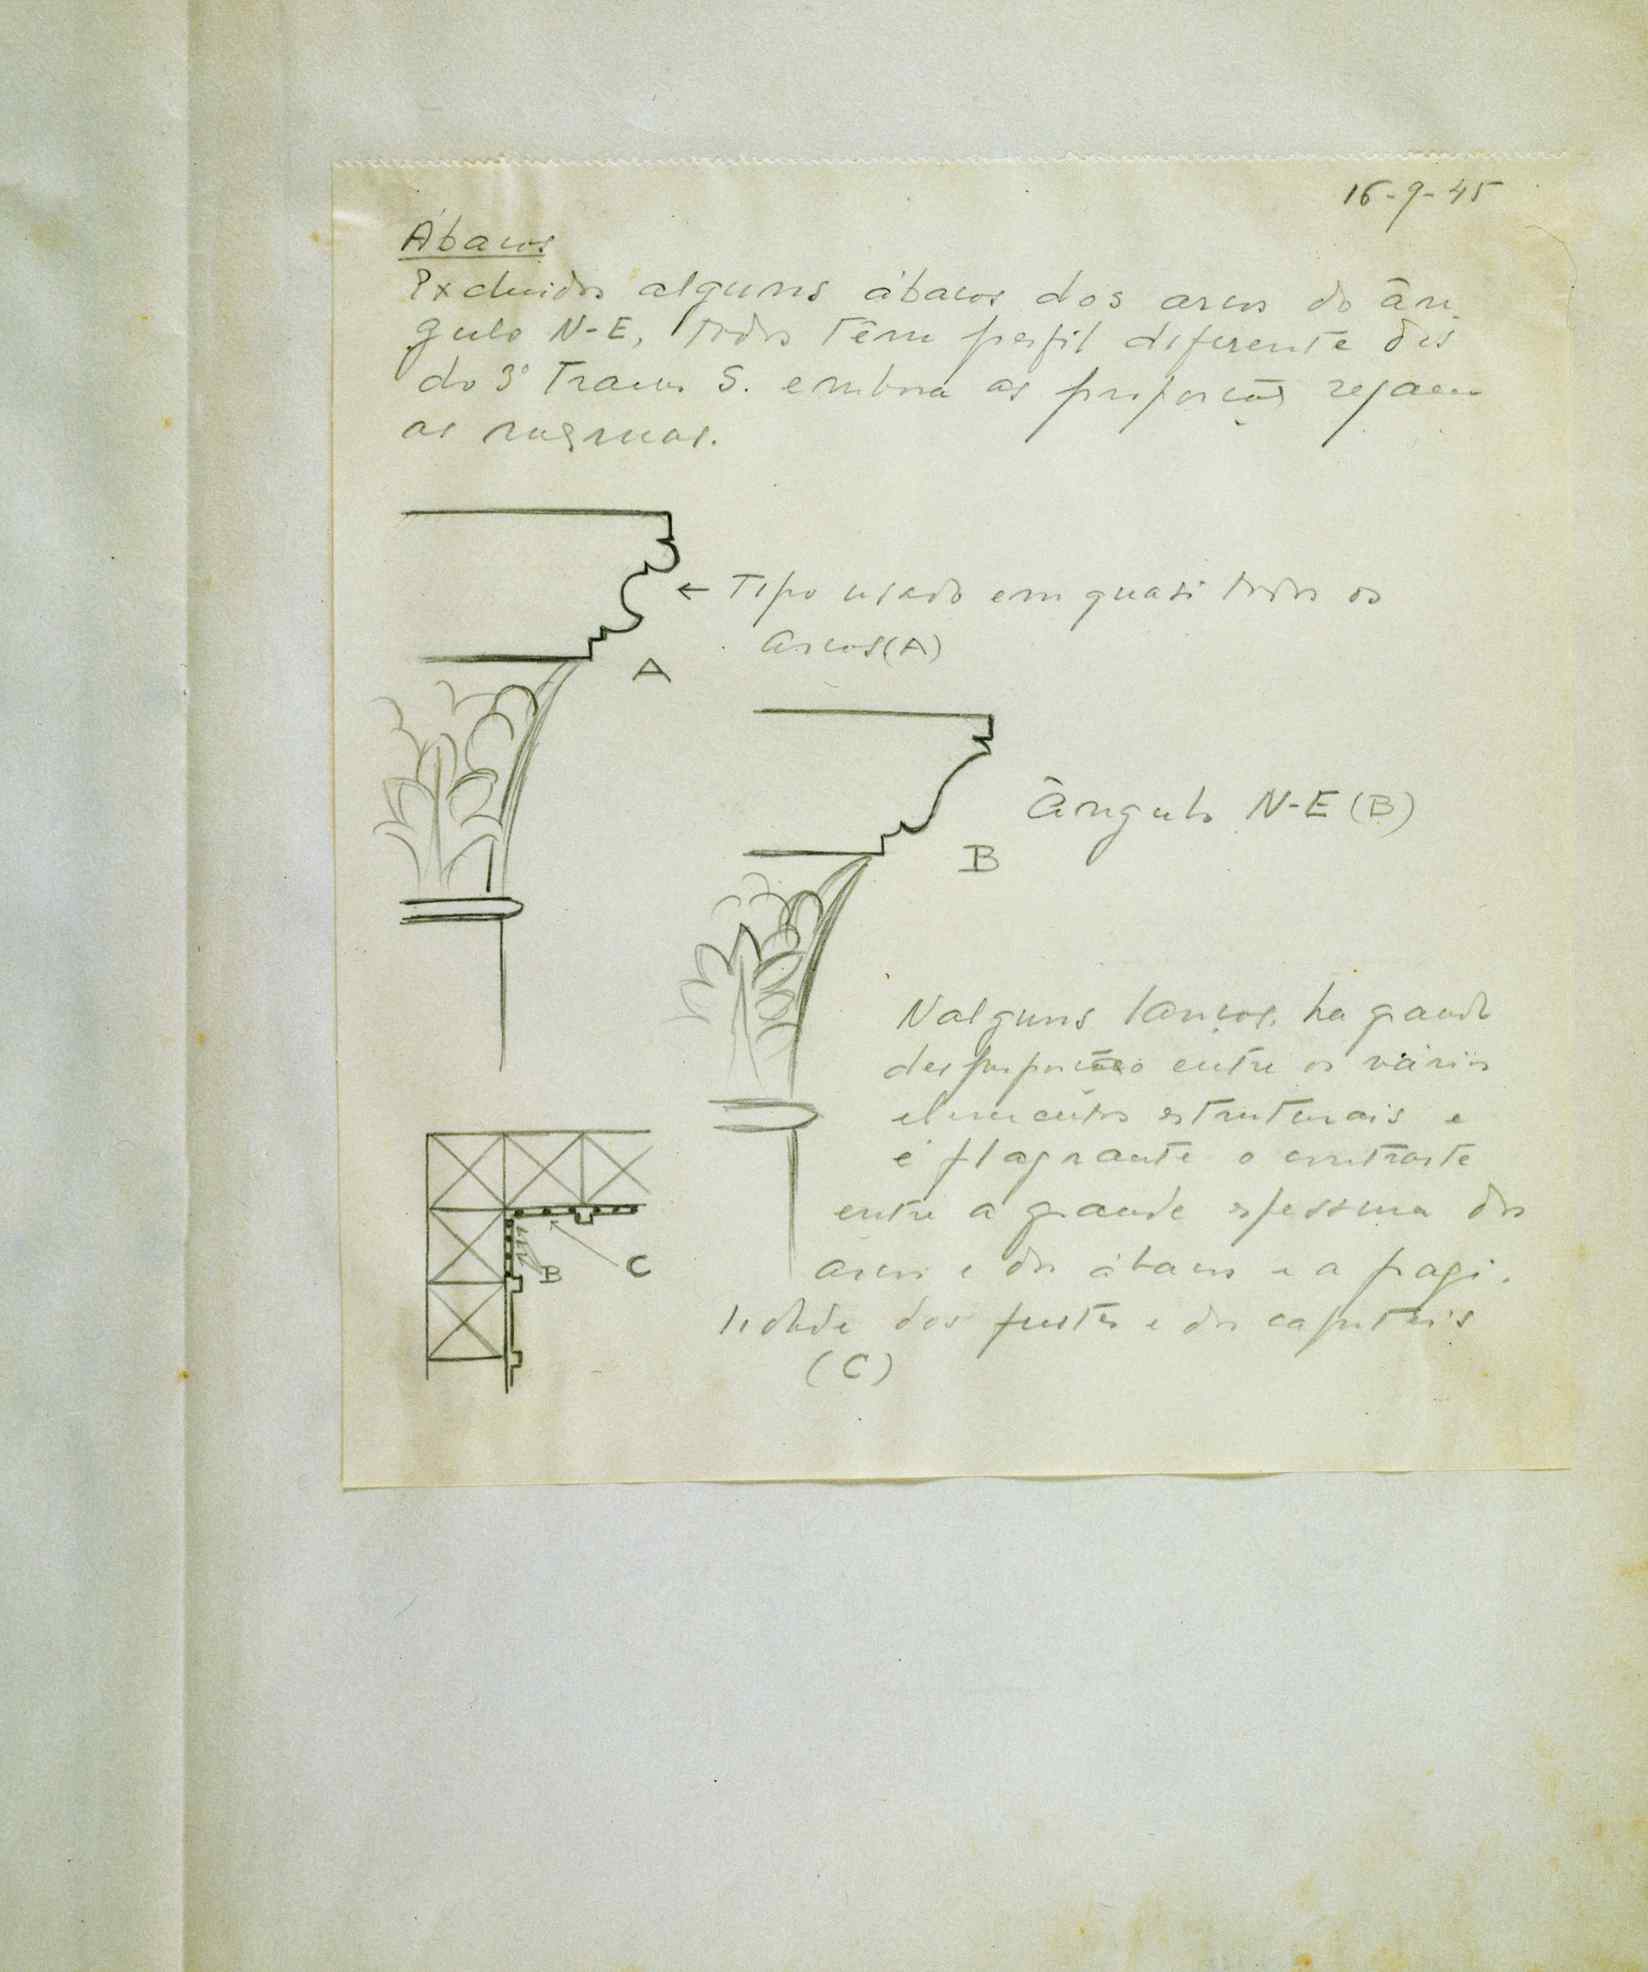 16-9-45
Ábacos
Excluidos alguns ábacos dos arcos do ân-
gulo N-E, todos têm perfil diferente dos
do 3º Tramo S. embora as proporções sejam
as mesmas.
← Tipo usado em quasi todos os
arcos (A)
A
ângulo N-E (B)
B
Nalguns lanços, ha grande
desproporção entre os vários
elementos estruturais e
é flagrante o contraste
entre a grande espessura dos
arcos e dos ábacos e a fragi-
lidade dos fustes e dos capiteis
(C)
B
C